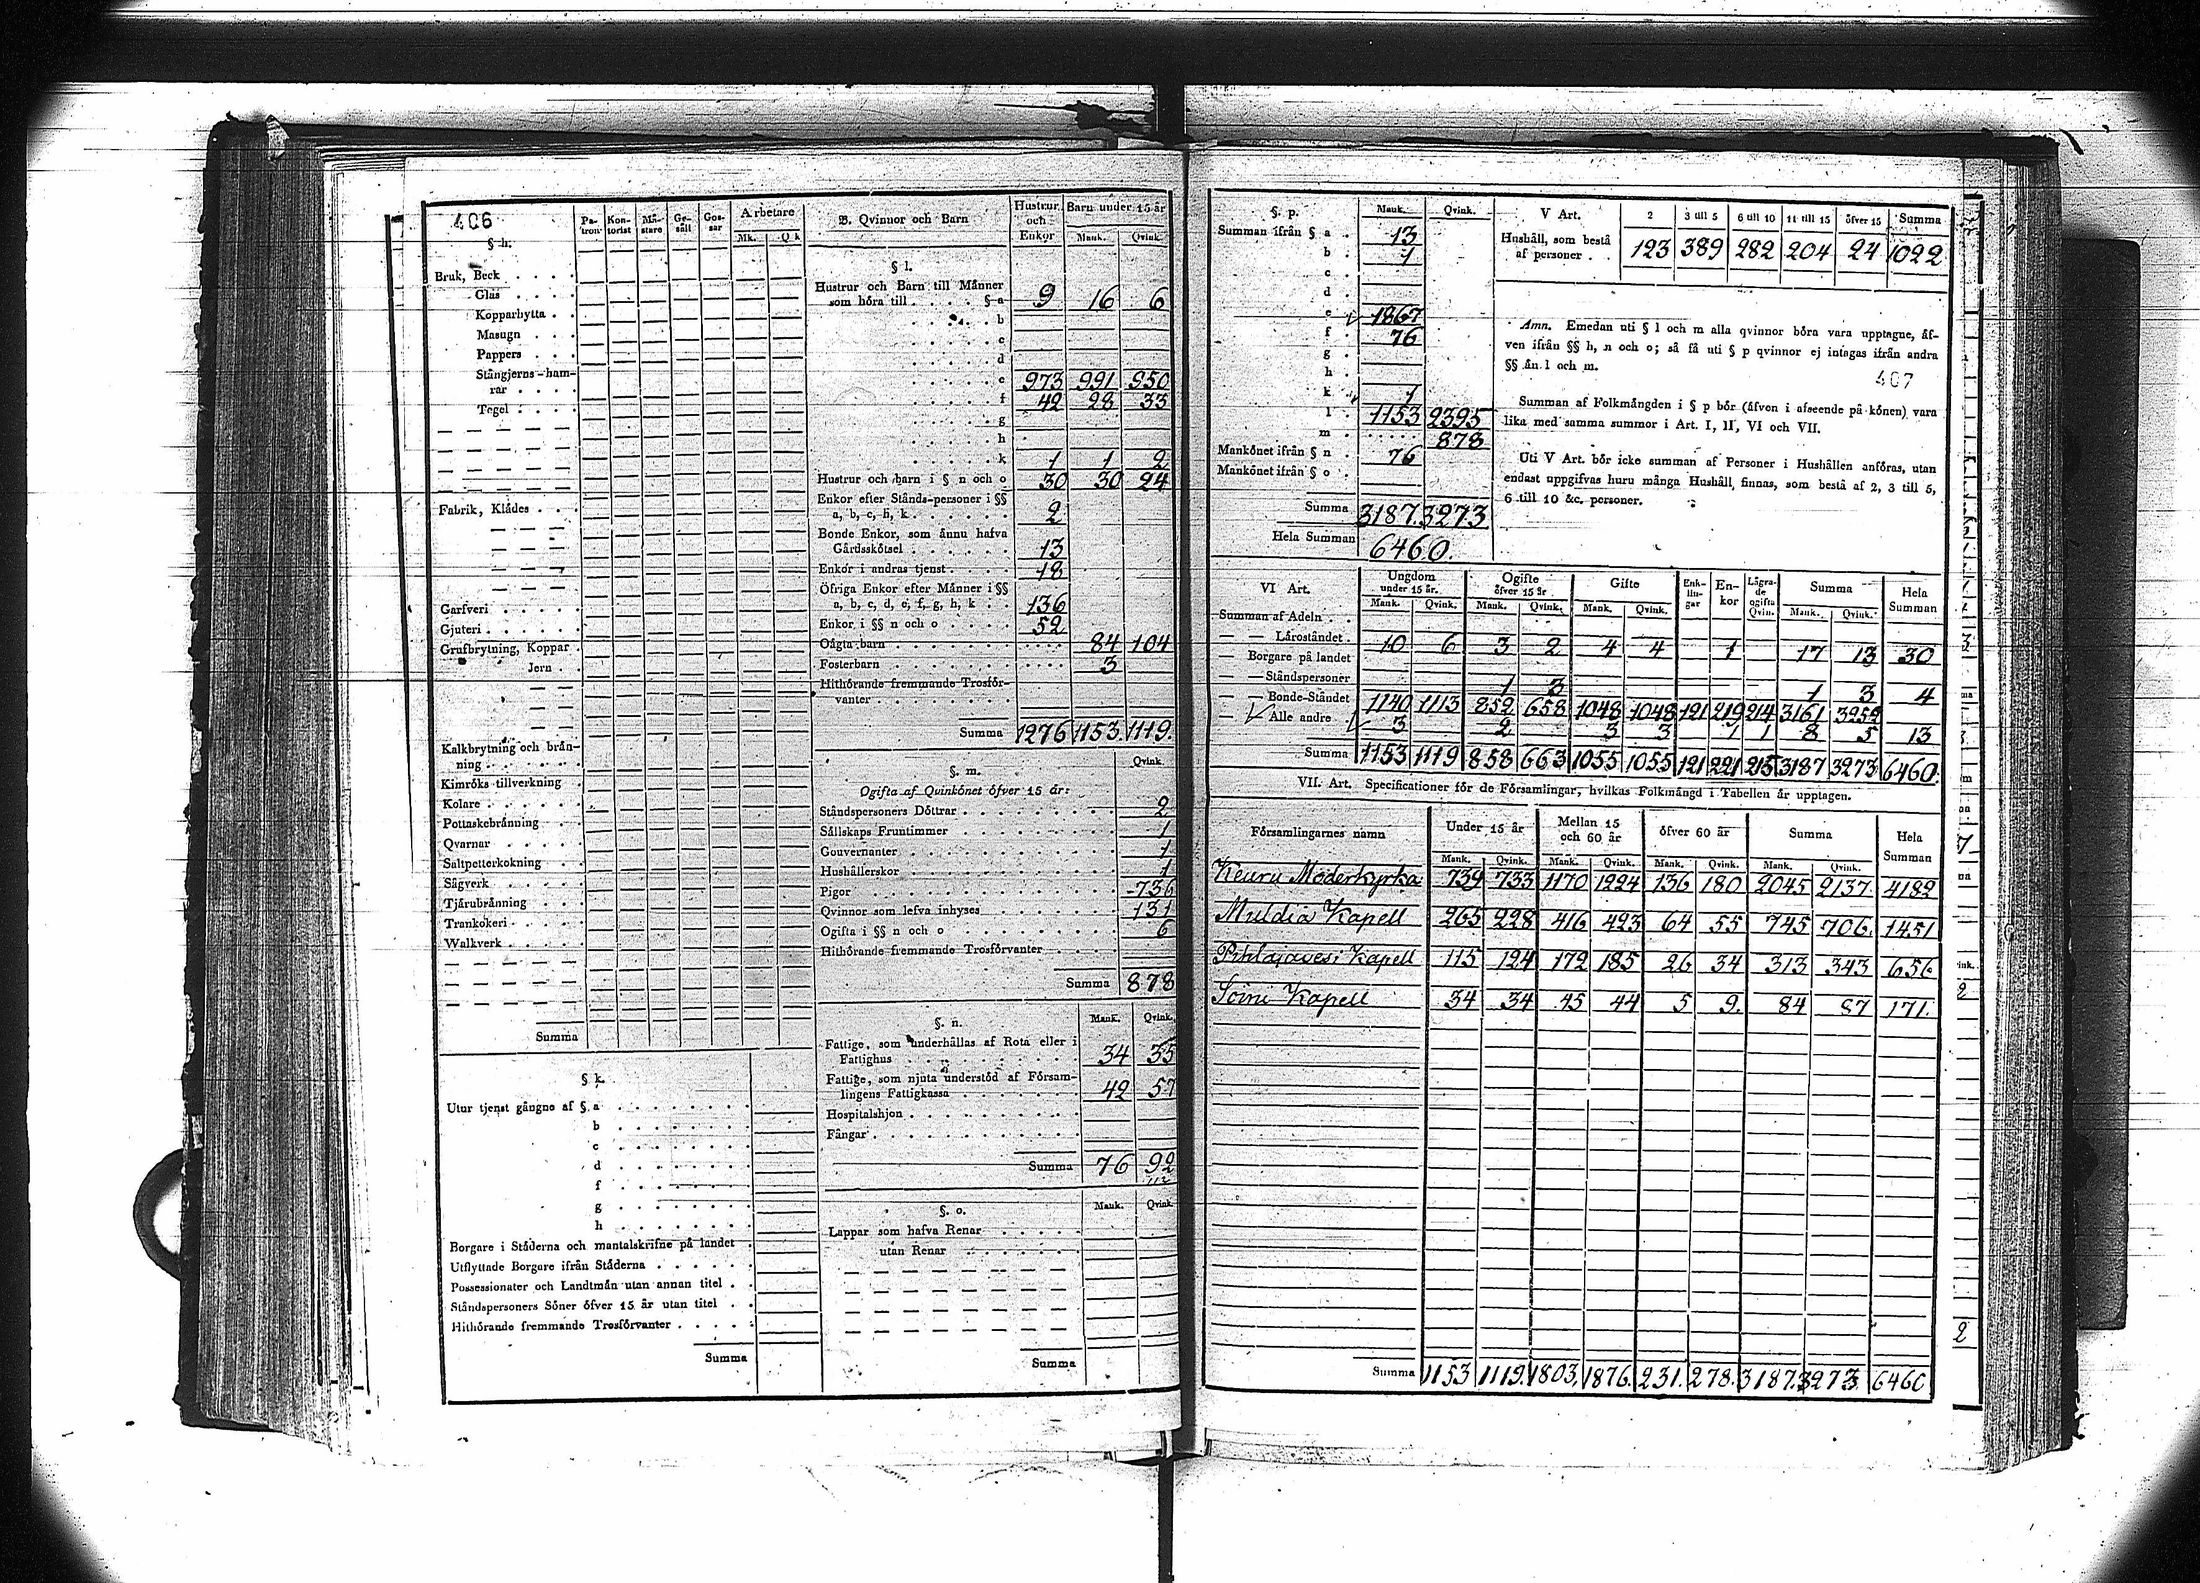 406
§ h.
Pa-tron Kon-torist Mä-stare Ge-säll Gos-sar Arbetare Mk. Qk
Bruk, Beck
Glas
Kopparhytta
Masugn
Pappers
Stångjerns-ham-
rar
Tegel
Fabrik, Klådes
Garfveri
Gjuteri
Grufbrytning, Koppar
Jern
Kalkbrytning och brån-
ning
Kimróks tillverkning
Kolare
Pottaskebrånning
Qvarnar
Saltpetterkokning
Sågverk
Tjårubrånning
Trankokeri
Walkverk
Summa
§ k.
Utur tjenst gångne af § a
b
c
d
f
g
h
Borgare i Ståderna och mantalskrifne på landet
Utflyttade Borgare ifrån Ståderna
Possessionater och Landtmån utan annan titel
Ståndspersoners Sóner ófver 15 år utan titel
Hithórande fremmande Trosfórvanter
Summa
B. Qvinnor och Barn Hustrur och Enkor Barn under 15 år Mank. Qvink.
§ l.
Hustrur och Barn till Månner
som hóra till § a 9 16 6
b
c
d
e 973 991 950
f 42 28 33
g
h
k 1 1 2
Hustrur och barn i § n och o 30 30 24
Enkor efter Stånds-personer i §§
a, b, c, h, k 2
Bonde Enkor, som ånnu hafva
Gårdsskótsel 13
Enkor i andras tjenst 18
Öfriga Enkor efter Månner i §§
a, b, c, d, e, f, g, h, k 136
Enkor i §§ n och o 52
Oågta barn 84 104
Fosterbarn 3
Hithórande fremmande Trosfór-
vanter
Summa 1276 1153. 1119.
§. m. Qvink.
Ogifta af Qvinkónet ófver 15 år:
Ståndspersoners Dóttrar 2
Sållskaps Fruntimmer 1
Gouvernanter 1
Hushållerskor 1
Pigor 736
Qvinnor som lefva inhyses 131
Ogifta i §§ n och o 6
Hithórande fremmande Trosfórvanter
Summa 878
§. n. Mank. Qvink.
Fattige, som underhållas af Rota eller i
Fattighus 34 35
Fattige, som njuta understód af Fórsam-
lingens Fattigkassa 42 57
Hospitalshjon
Fångar
Summa 76 92
§. o. Mank. Qvink.
Lappar som hafva Renar
utan Renar
Summa
§. p. Mank. Qvink.
Summan ifrån § a 13
b 1
c
d
e 1867
f 76
g
h
k 1
l 1153 2395
m 878
Mankónet ifrån § n 76
Mankónet ifrån § o
Summa 3187. 3273
Hela Summan 6460.
V Art. 2 3 till 5 6 till 10 11 till 15 ófver 15 Summa
Hushåll, som bestå
af personer 123 389 282 204 24 1022
Anm. Emedan uti § l och m alla qvinnor bóra vara upptagne, åf-
ven ifrån §§ h, n och o; så få uti § p qvinnor ej intagas ifrån andra
§§ ån l och m.
407
Summan af Folkmångden i § p bór (åfven i afseende på kónen) vara
lika med samma summor i Art. I, II, VI och VII.
Uti V Art. bór icke summan af Personer i Hushållen anfóras, utan
endast uppgifvas huru många Hushåll finnas, som bestå af 2, 3 till 5,
6 till 10 &c. personer.
VI Art. Ungdom under 15 år. Ogifte ófver 15 år Gifte Enk-lin-gar En-kor Lågra-de ogifta Qvin. Summa Hela Summan
Mank. Qvink. Mank. Qvink. Mank. Qvink. Mank. Qvink.
Summan af Adeln
— — Låroståndet 10 6 3 2 4 4 1 17 13 30
— Borgare på landet
— — Ståndspersoner 1 3 1 3 4
— — Bonde-Ståndet 1140 1113 852 658 1048 1048 121 219 214 3161 3252
— Alle andre 3 2 3 3 1 1 8 5 13
Summa 1153 1119 858 663 1055 1055 121 221 215 3187 3273 6460.
VII. Art. Specificationer fór de Fórsamlingar, hvilkas Folkmångd i Tabellen år upptagen.
Fórsamlingarnes namn Under 15 år Mellan 15 och 60 år ófver 60 år Summa Hela Summan
Mank. Qvink. Mank. Qvink. Mank. Qvink. Mank. Qvink.
Keuru Moderkyrka 739 733 1170 1224 136 180 2045 2137. 4182
Muldia Kapell 265 228 416 423 64 55 745 706. 1451
Pihlajavesi Kapell 115 124 172 185 26 34 313 343 656
Soini Kapell 34 34 45 44 5 9. 84 87 171.
Summa 1153 1119. 1803. 1876. 231. 278. 3187. 3273. 6460